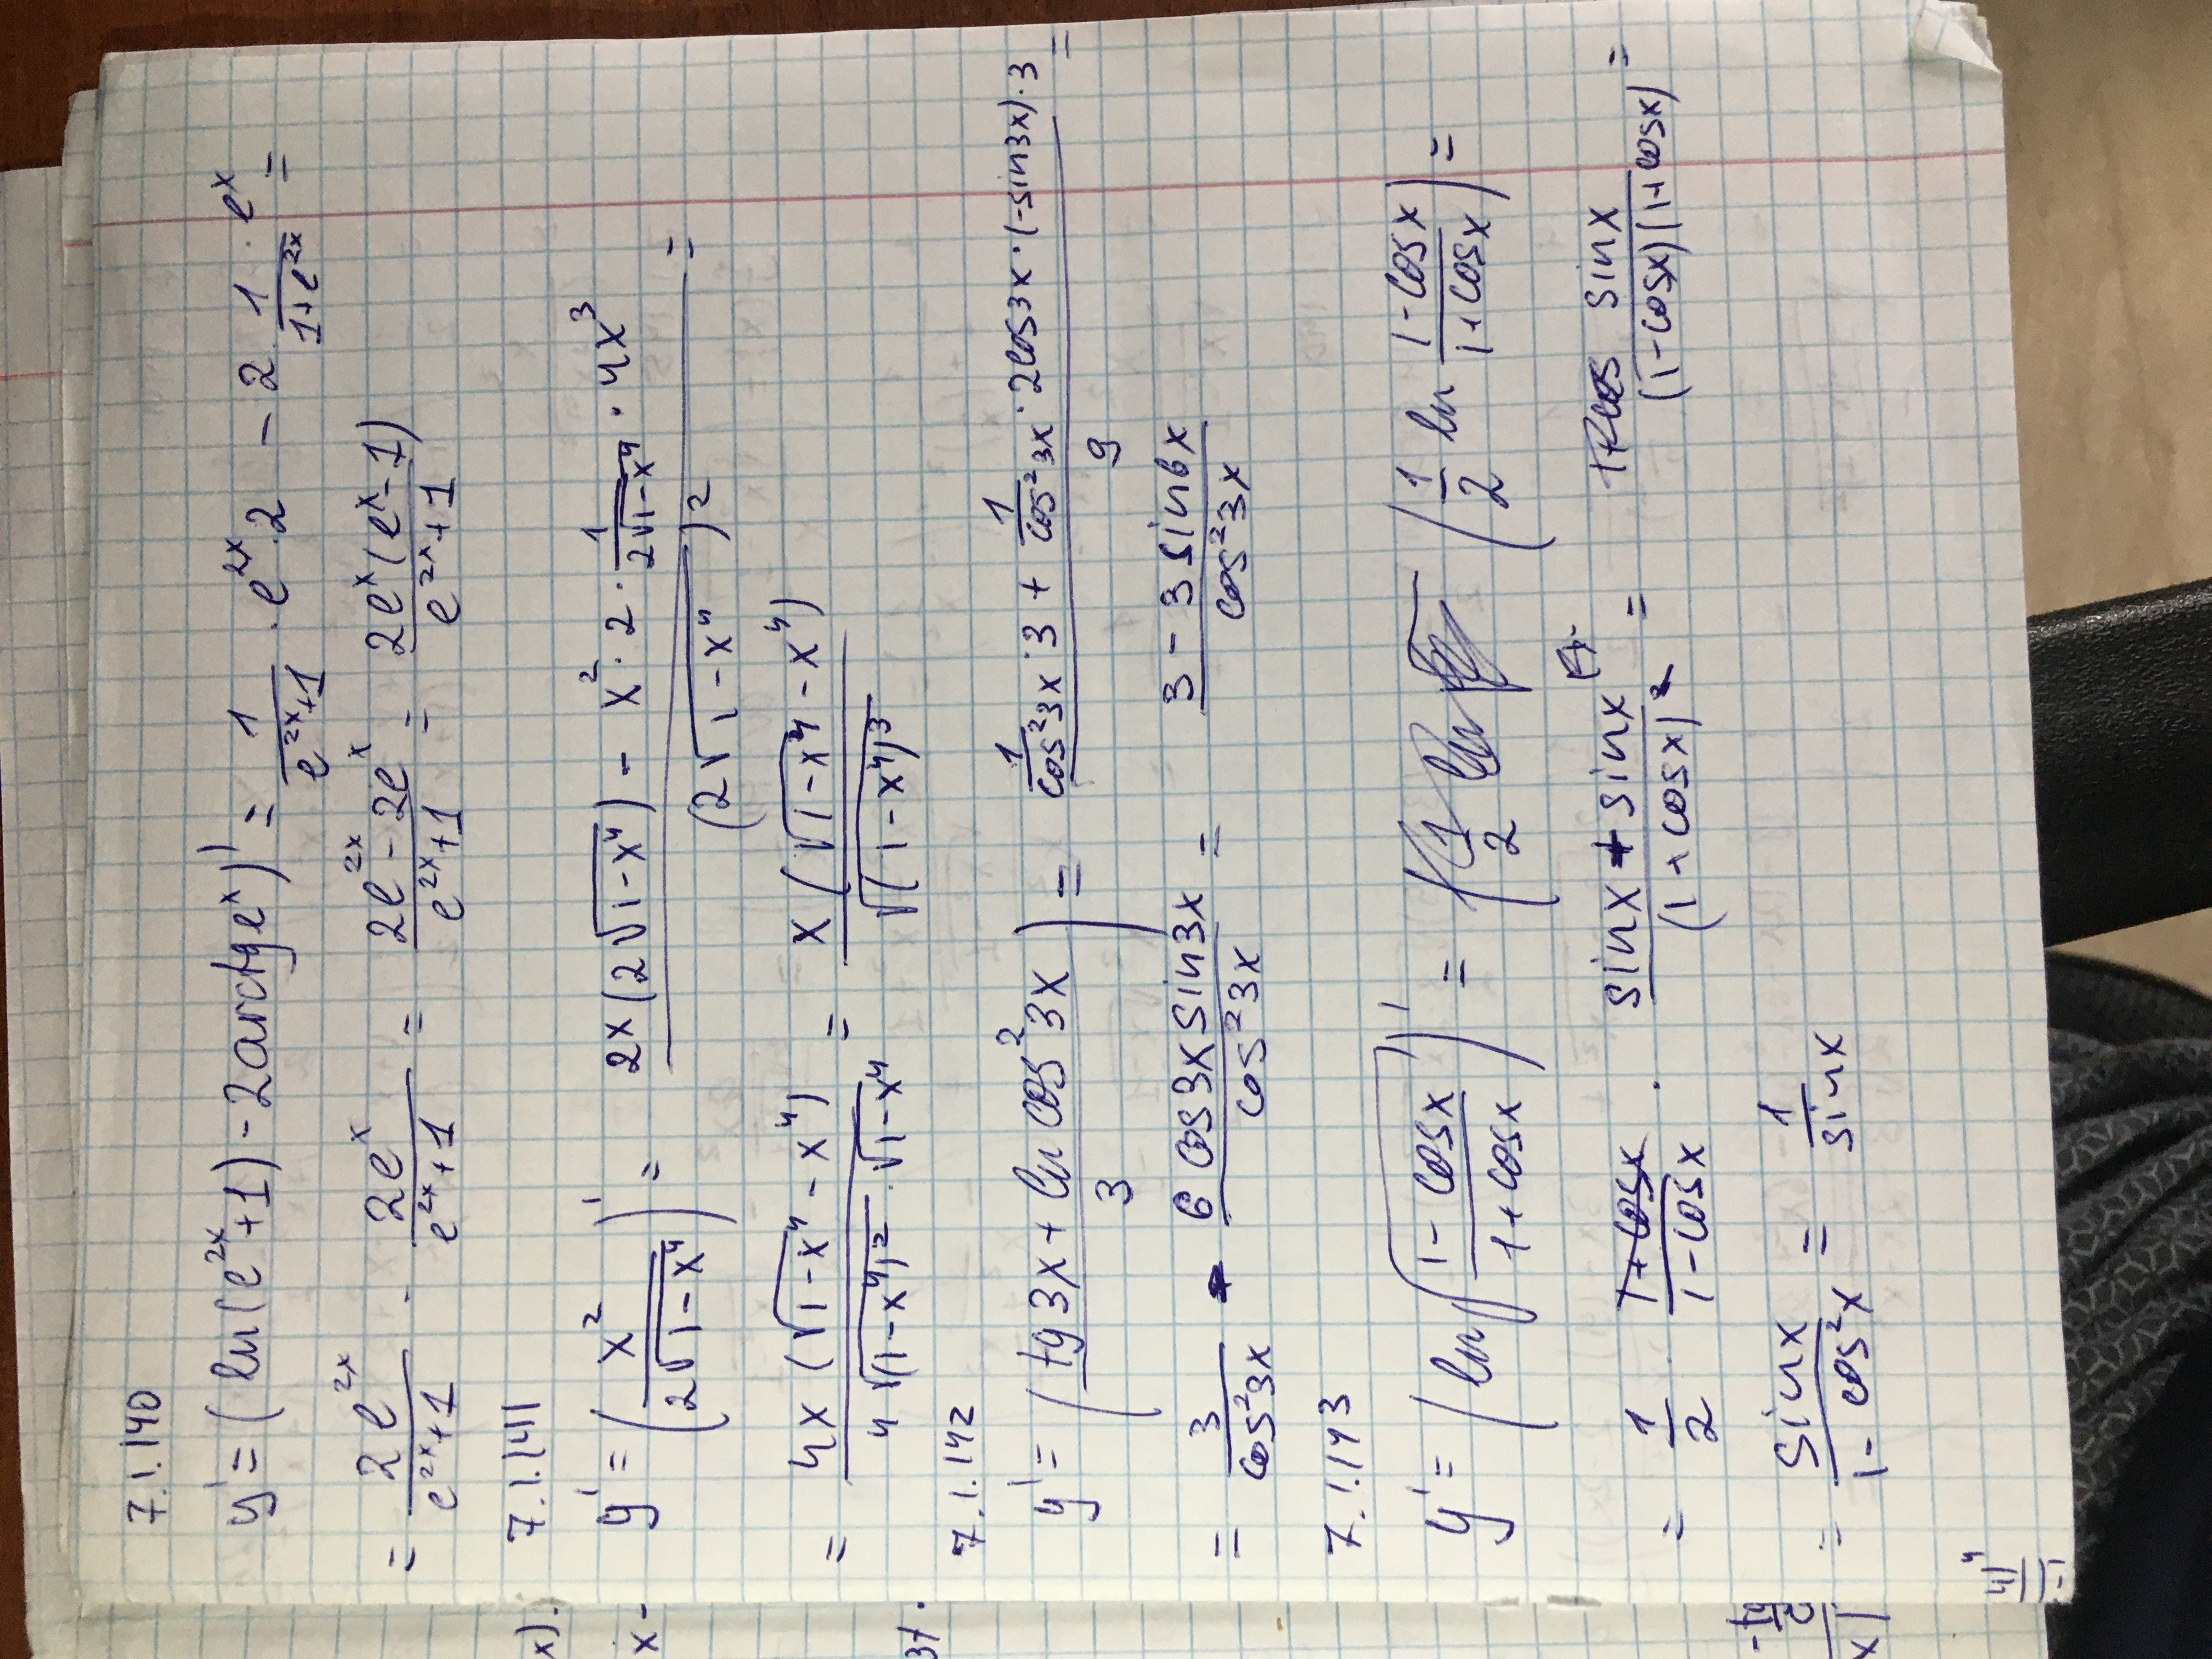 7.1.140
y' = (ln(e^{2x}+1) - 2arctg e^x)' = \frac{1}{e^{2x}+1} · e^{2x} · 2 - 2 · \frac{1}{1+e^{2x}} · e^x =
= \frac{2e^{2x}}{e^{2x}+1} - \frac{2e^x}{e^{2x}+1} = \frac{2e^{2x} - 2e^x}{e^{2x}+1} = \frac{2e^x(e^x-1)}{e^{2x}+1}
7.1.141
y' = (\frac{x^2}{2\sqrt{1-x^4}})' = \frac{2x(2\sqrt{1-x^4}) - x^2 · 2 · \frac{1}{2\sqrt{1-x^4}} · 4x^3}{(2\sqrt{1-x^4})^2} =
= \frac{4x(\sqrt{1-x^4} - x^4)}{4\sqrt{(1-x^4)^2} · \sqrt{1-x^4}} = \frac{x(\sqrt{1-x^4} - x^4)}{\sqrt{(1-x^4)^3}}
7.1.142
y' = (\frac{tg3x + ln cos^2 3x}{3}) = \frac{\frac{1}{cos^2 3x} · 3 + \frac{1}{cos^2 3x} · 2cos3x · (-sin3x) · 3}{9} =
= \frac{3}{cos^2 3x} - \frac{6 cos3x sin3x}{cos^2 3x} = \frac{3 - 3sin6x}{cos^2 3x}
7.1.143
y' = (ln\sqrt{\frac{1-cosx}{1+cosx}})' = (\frac{1}{2} ln \frac{1-cosx}{1+cosx}) =
= \frac{1}{2} · \frac{1+cosx}{1-cosx} · \frac{sinx + sinx}{(1+cosx)^2} = \frac{sinx}{(1-cosx)(1+cosx)} =
= \frac{sinx}{1-cos^2x} = \frac{1}{sinx}